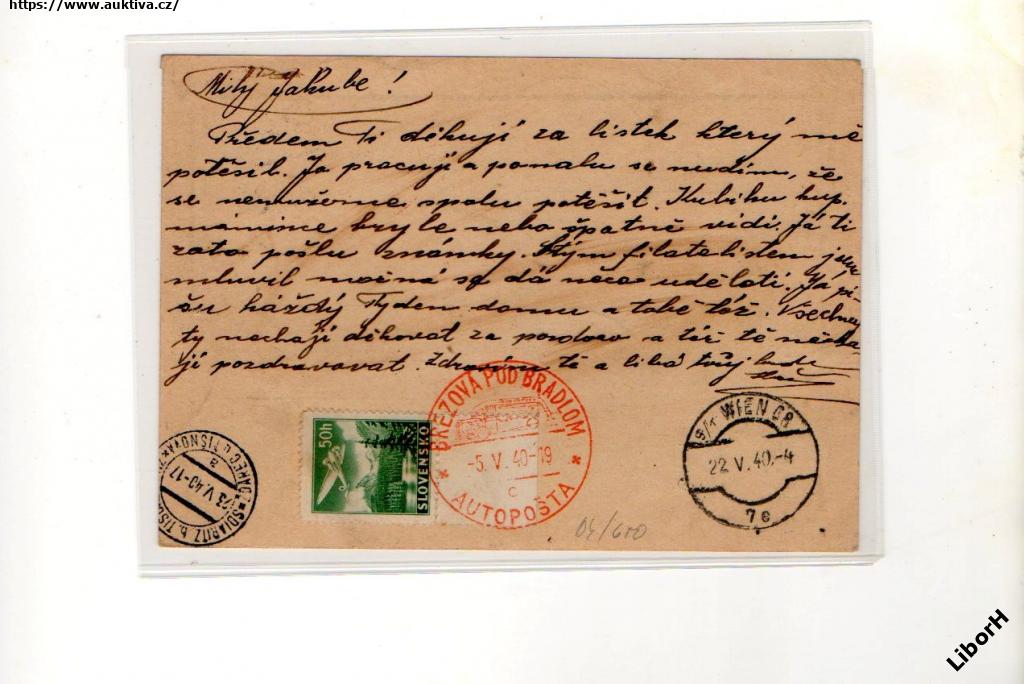 https://www.auktiva.cz/
Milý Jakube!
Předem Ti děkuji za lístek který mě
potěšil. Ja pracuji a pomalu se nudím, že
se nemužeme spolu potěšit. Kubihu kup.
mamince bryle nebo špatně vidí. Já ti
zato pošlu známky. Stým filatelistem jsem
mluvil možná se dá něco uděloti. Ja pí-
šu každý Tyden domu a tobě též. Všechny
ty nechají děkovat za pozdrav a též tě nechá-
jí pozdravovat. Zdravím tě a líbá tvůj
50h
SLOVENSKO
BREZOVÁ POD BRADLOM
-5.V.40-19
c
AUTOPOŠTA
WIEN
22.V.40.-4
7e
a
23.V.40-17
SDIARITZ b. TISCH
04/600
LiborH